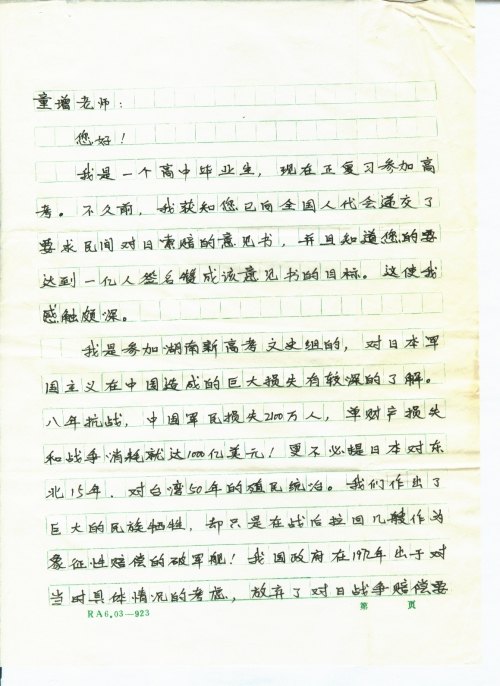 童增老师：
您好！
我是一个高中毕业生，现在正复习参加高
考。不久前，我获知您已向全国人代会递交了
要求民间对日索赔的意见书，并且知道您的要
达到一亿人签名赞成该意见书的目标。这使我
感触颇深。
我是参加湖南新高考文史组的，对日本军
国主义在中国造成的巨大损失有较深的了解。
八年抗战，中国军民损失2100万人，单财产损失
和战争消耗就达1000亿美元！更不必提日本对东
北15年，对台湾50年的殖民统治。我们作出了
巨大的民族牺牲，却只是在战后拉回几艘作为
象征性赔偿的破军舰！我国政府在1972年出于对
当时具体情况的考虑，放弃了对日战争赔偿要
RA6.03—923 第 页